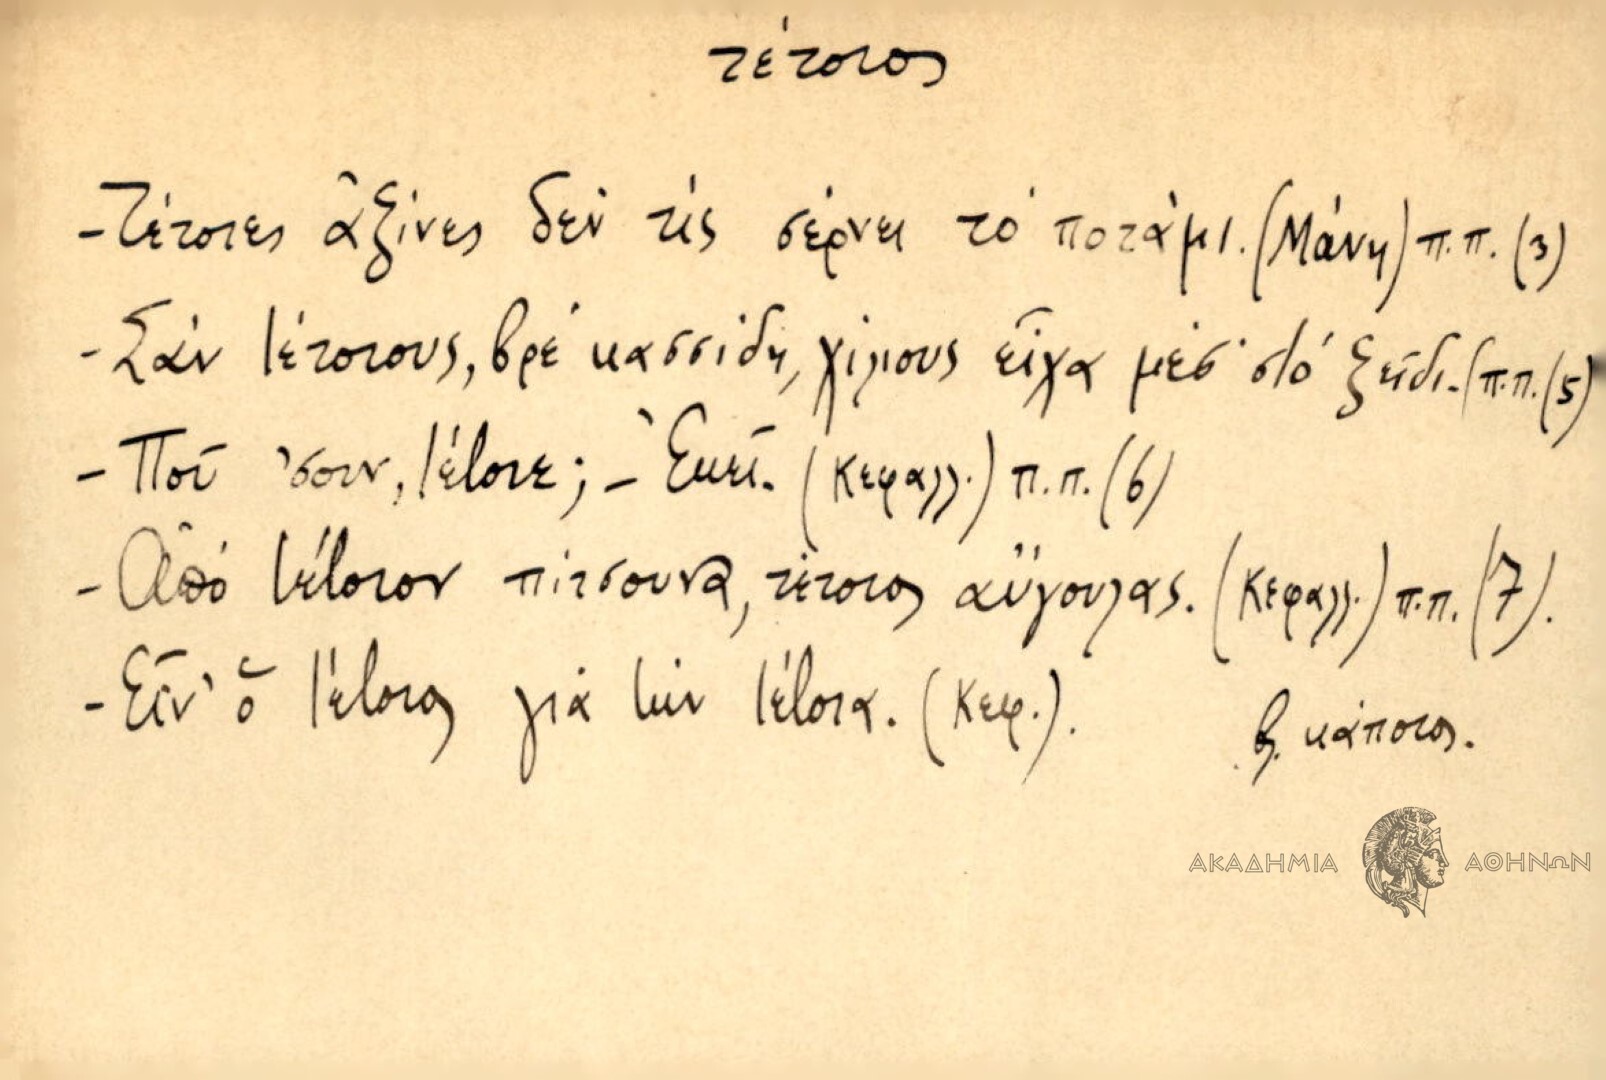 τέτοιος
- Τέτοιες ἀξίνες δέν τίς σέρνει τό ποτάμι. (Μάνη) π.π. (3)
- Σάν τέτοιους, βρέ κασσίδη, χίλιους εἶχα μέσ' στό ξεῖδι. (π.π. (5)
- Ποῦ 'σουν, τέτοιε; - Ἐκεῖ. (Κεφαλλ.) π.π. (6)
- Ἀπό τέτοιον πίτσουνα, τέτοιος αὔγουλας. (Κεφαλλ.) π.π. (7).
- Εἶν' ὁ τέτοιος γιά τήν τέτοια. (Κεφ.).
βλ. κάποιος.
ΑΚΑΔΗΜΙΑ ΑΘΗΝΩΝ